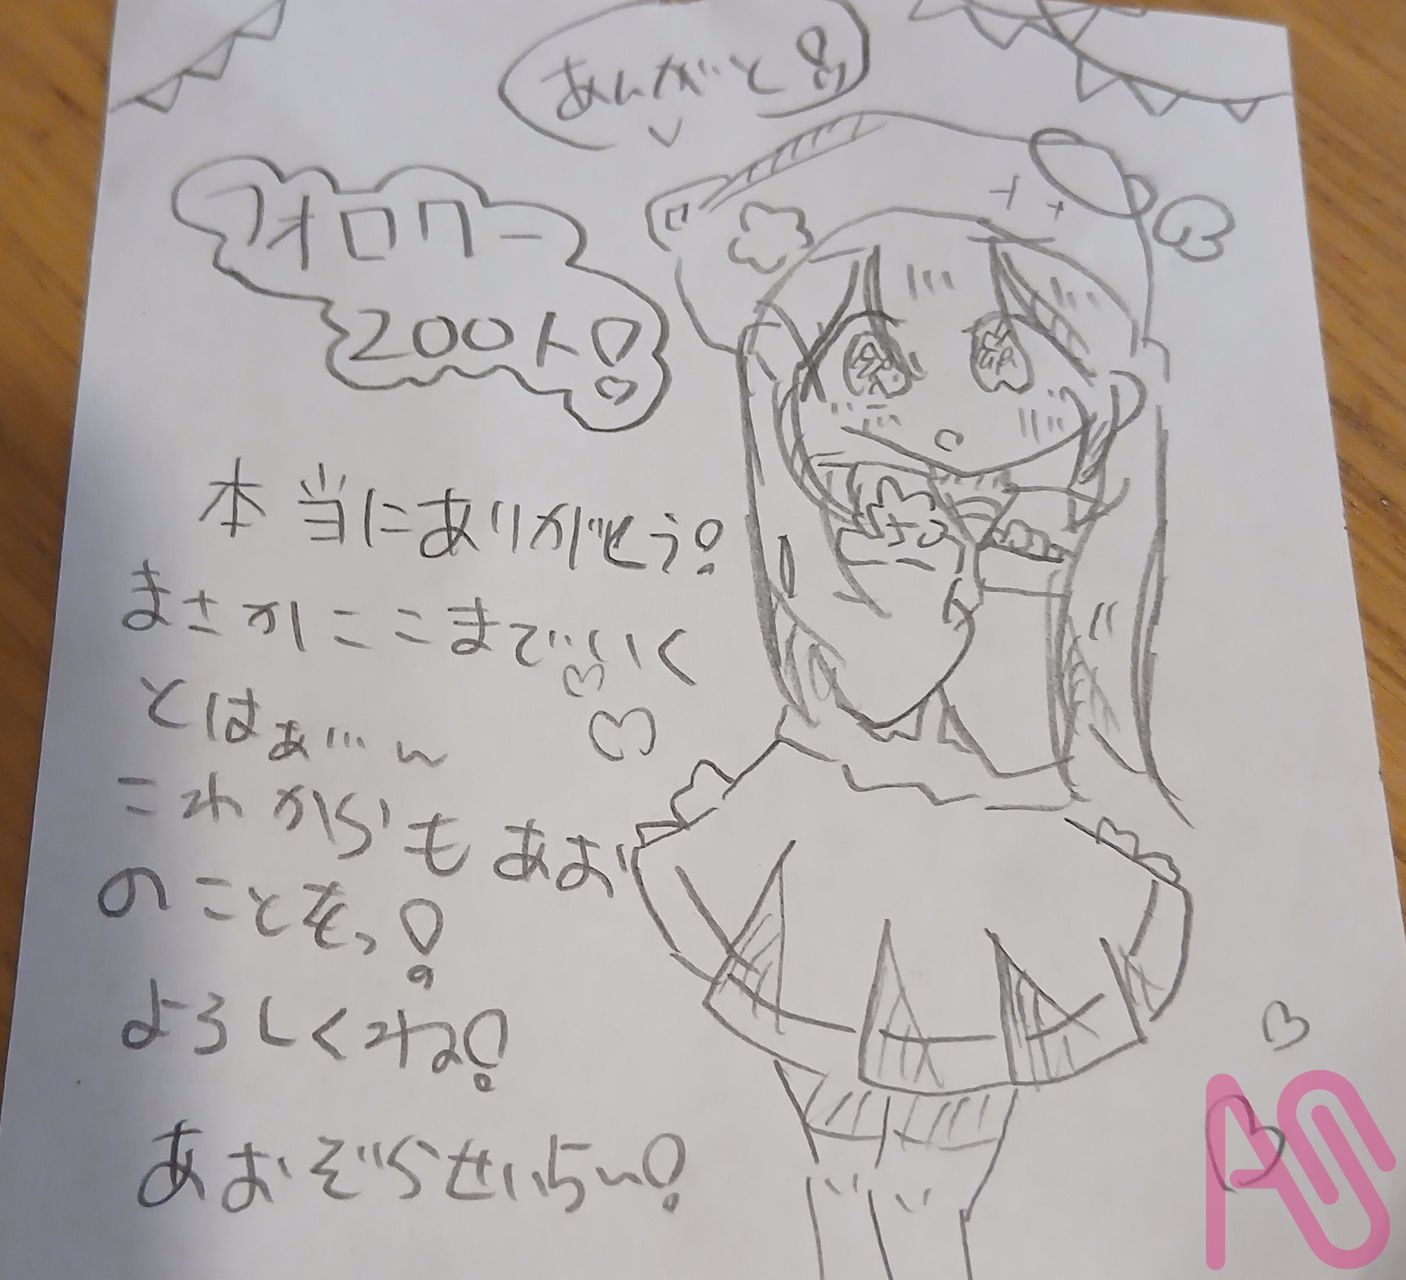 あんがと!
フォロワー
200人!
本当にありがとう!
まさかここまでいく
とはぁ…ん
これからもあお
のことをっ!
よろしくね!
あおぞらせいらい!